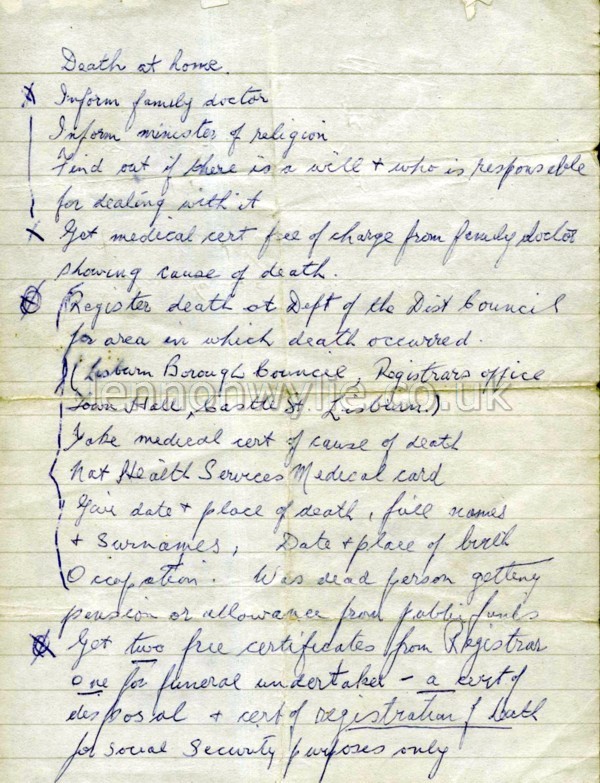 Death at home.
X Inform family doctor
Inform minister of religion
Find out if there is a will + who is responsable
for dealing with it
X Get medical cert free of charge from family doctor
showing cause of death.
Register death at Dept of the Dist Council
for area in which death occurred.
(Lisburn Borough Council, Registrars office
lennonwylie.co.uk
Town Hall, Castle St Lisburn)
Take medical cert of cause of death
Nat Health Services Medical card
Give date + place of death, full names
+ Surnames, Date + place of birth
Occupation. Was dead person getting
pension or allowance from public funds
X Get two free certificates from Registrar
One for funeral undertaker - a cert of
disposal + cert of registration of death
for social security purposes only